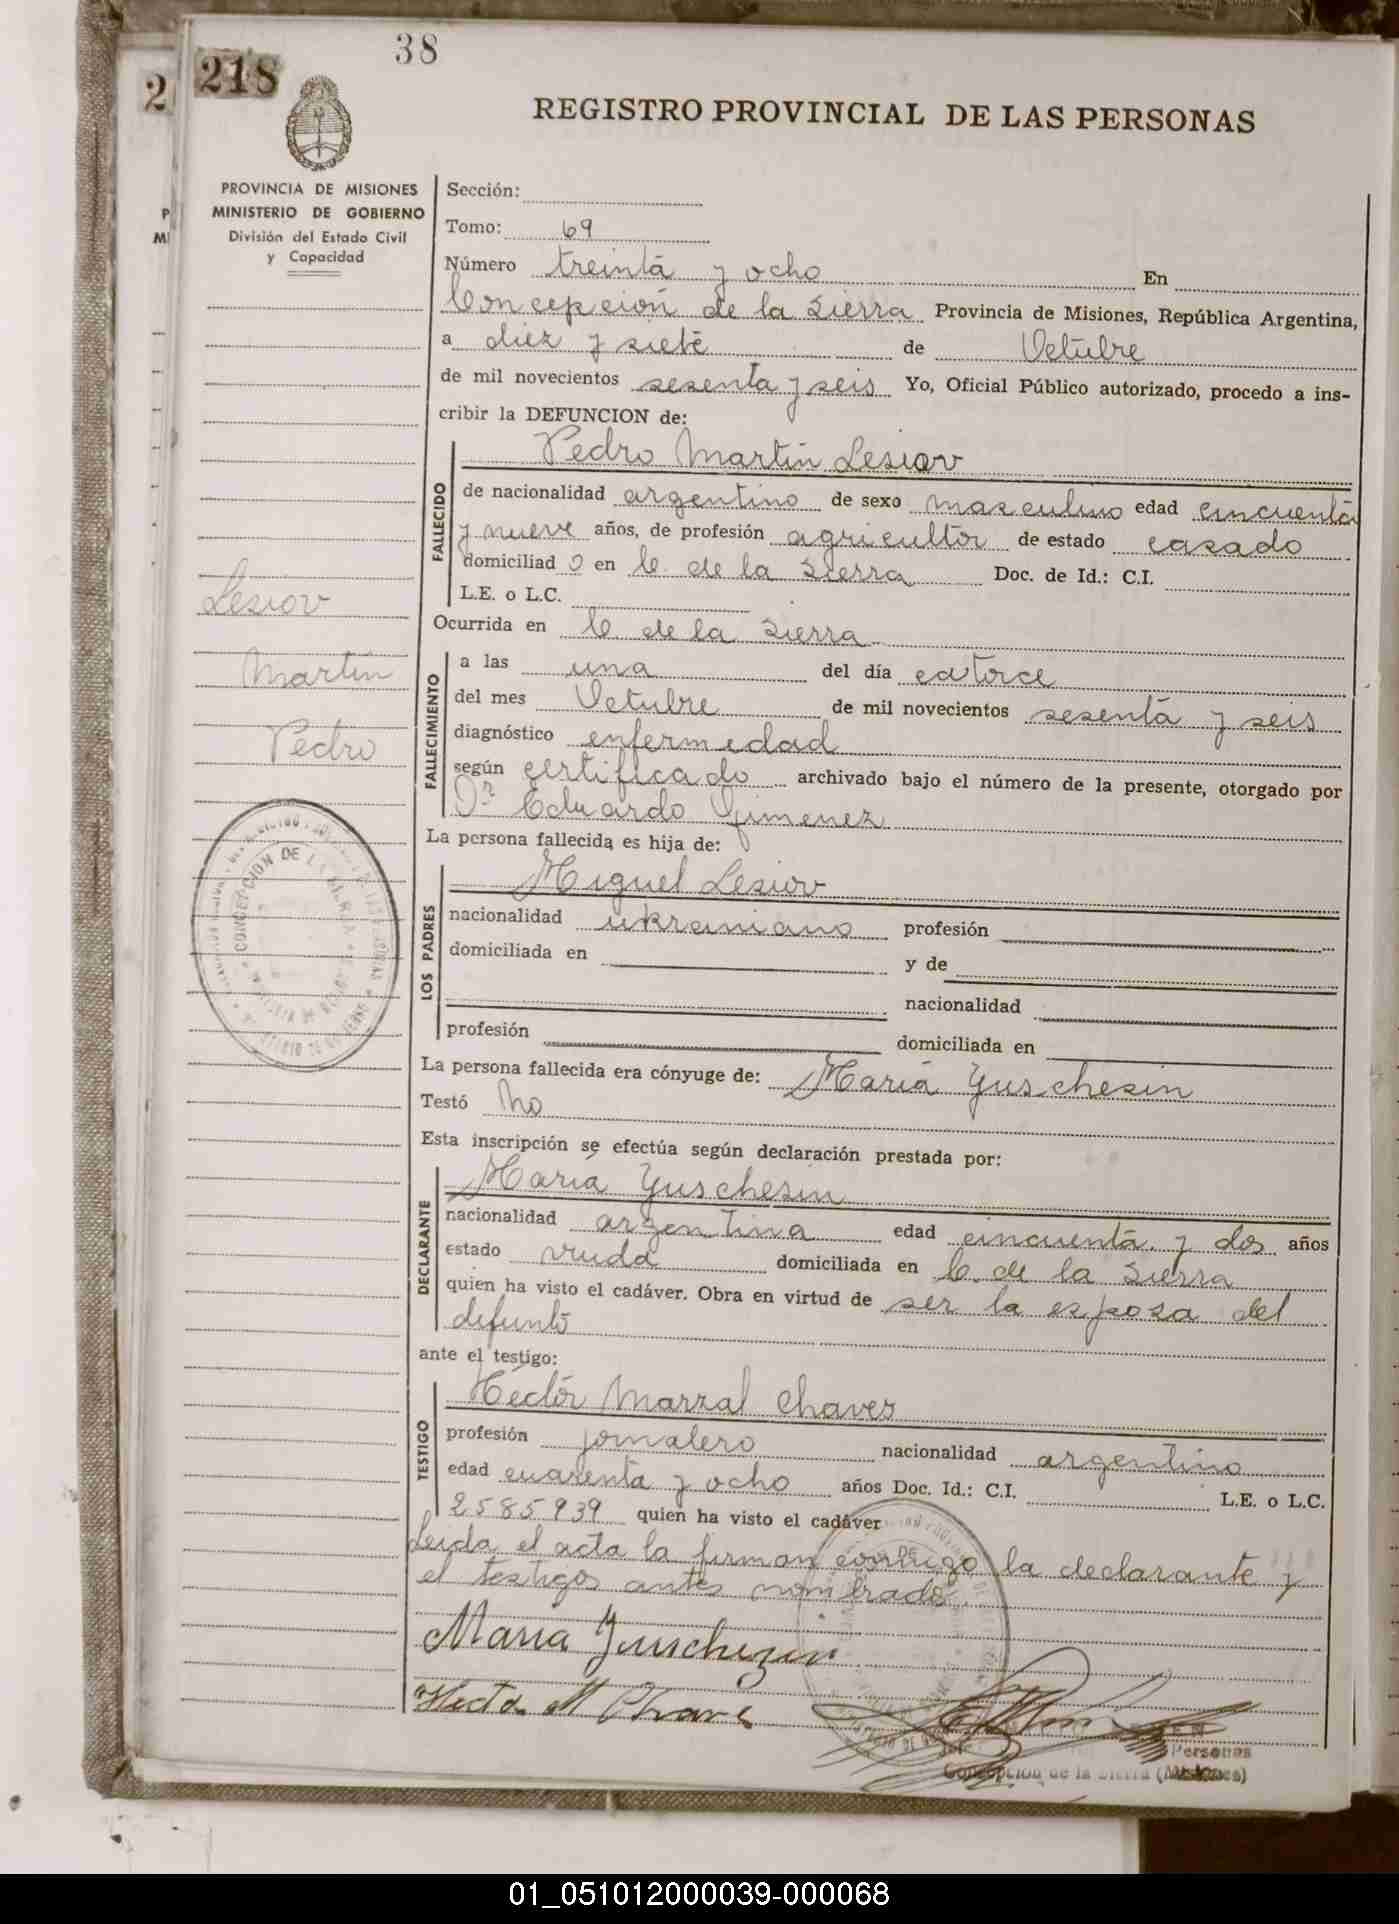 38
218
2
REGISTRO PROVINCIAL DE LAS PERSONAS
PROVINCIA DE MISIONES
MINISTERIO DE GOBIERNO
División del Estado Civil
y Capacidad
P
MI
Sección:
Tomo: 69
Número treinta y ocho En
Concepción de la Sierra Provincia de Misiones, República Argentina,
a diez y siete de Octubre
de mil novecientos sesenta y seis Yo, Oficial Público autorizado, procedo a ins-
cribir la DEFUNCION de:
FALLECIDO
Pedro Martin Lesiov
de nacionalidad argentino de sexo masculino edad cincuenta
y nueve años, de profesión agricultor de estado casado
domiciliad o en C. de la Sierra Doc. de Id.: C.I.
L.E. o L.C.
Ocurrida en C. de la Sierra
FALLECIMIENTO
a las una del día catorce
del mes Octubre de mil novecientos sesenta y seis
diagnóstico enfermedad
según certificado archivado bajo el número de la presente, otorgado por
Dr Eduardo Gimenez
La persona fallecida es hija de:
LOS PADRES
Miguel Lesiov
nacionalidad ukraniano profesión
domiciliada en y de
nacionalidad
profesión domiciliada en
La persona fallecida era cónyuge de: María Yuschesin
Testó No
Esta inscripción se efectúa según declaración prestada por:
DECLARANTE
María Yuschesin
nacionalidad argentina edad cincuenta y dos años
estado viuda domiciliada en C. de la Sierra
quien ha visto el cadáver. Obra en virtud de ser la esposa del
difunto
ante el testigo:
TESTIGO
Héctor Marzal Chaves
profesión jornalero nacionalidad argentino
edad cuarenta y ocho años Doc. Id.: C.I. L.E. o L.C.
2585939 quien ha visto el cadáver
Leida el acta la firman conmigo la declarante y
el testigos antes nombrado.
Maria Yuschezin
Hector M Chaves
Lesiov
Martin
Pedro
CONCEPCION DE LA SIERRA
Personas
Concepción de la Sierra (Misiones)
01_051012000039-000068